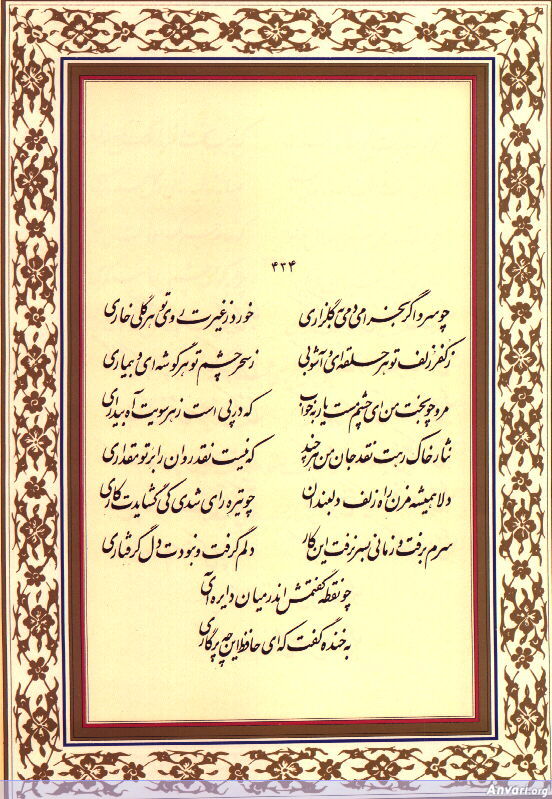 ۴۳۴
چو سرو اگر بخرامی دمی به گلزاری خورد ز غیرت روی تو هر گلی خاری
ز کفر زلف تو هر حلقه‌ای و آشوبی ز سحر چشم تو هر گوشه‌ای و بیماری
مرو چو بخت من ای چشم مست یار به خواب که در پی است ز هر سویت آه بیداری
نثار خاک رهت نقد جان من هر چند که نیست نقد روان را بر تو مقداری
دلا همیشه مزن راه زلف دلبندان چو تیره رای شدی کی گشایدت کاری
سرم برفت و زمانی بسر نرفت این کار دلم گرفت و نبودت دل گرفتاری
چو نقطه گفتمش اندر میان دایره آی
به خنده گفت که ای حافظ این چه پرگاری
Anvari.org